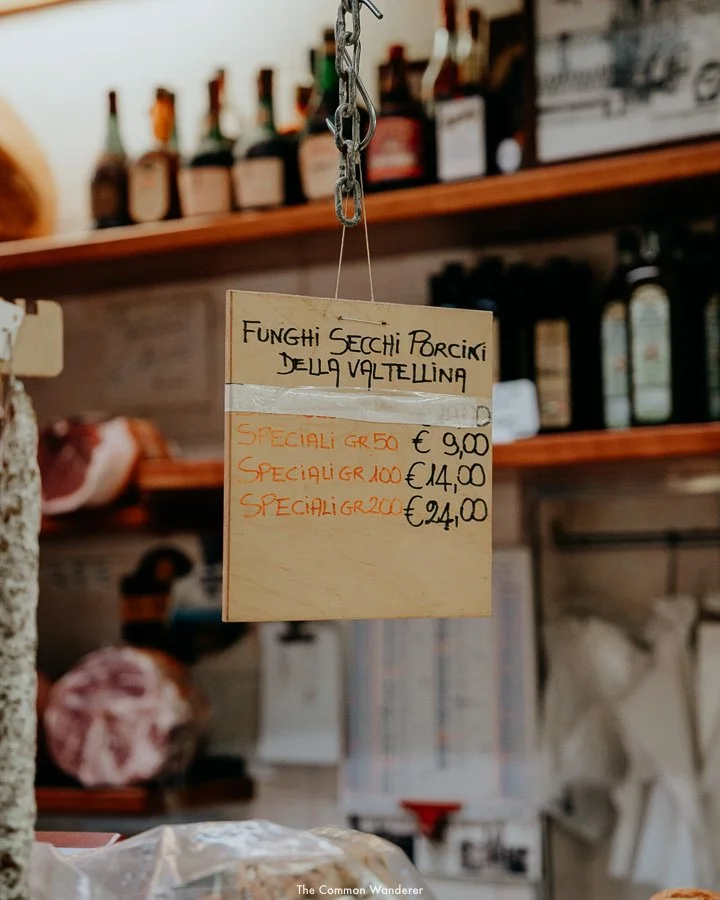 FUNGHI SECCHI PORCINI
DELLA VALTELLINA
SPECIALI GR 50 € 9,00
SPECIALI GR 100 € 14,00
SPECIALI GR 200 € 24,00
The Common Wanderer